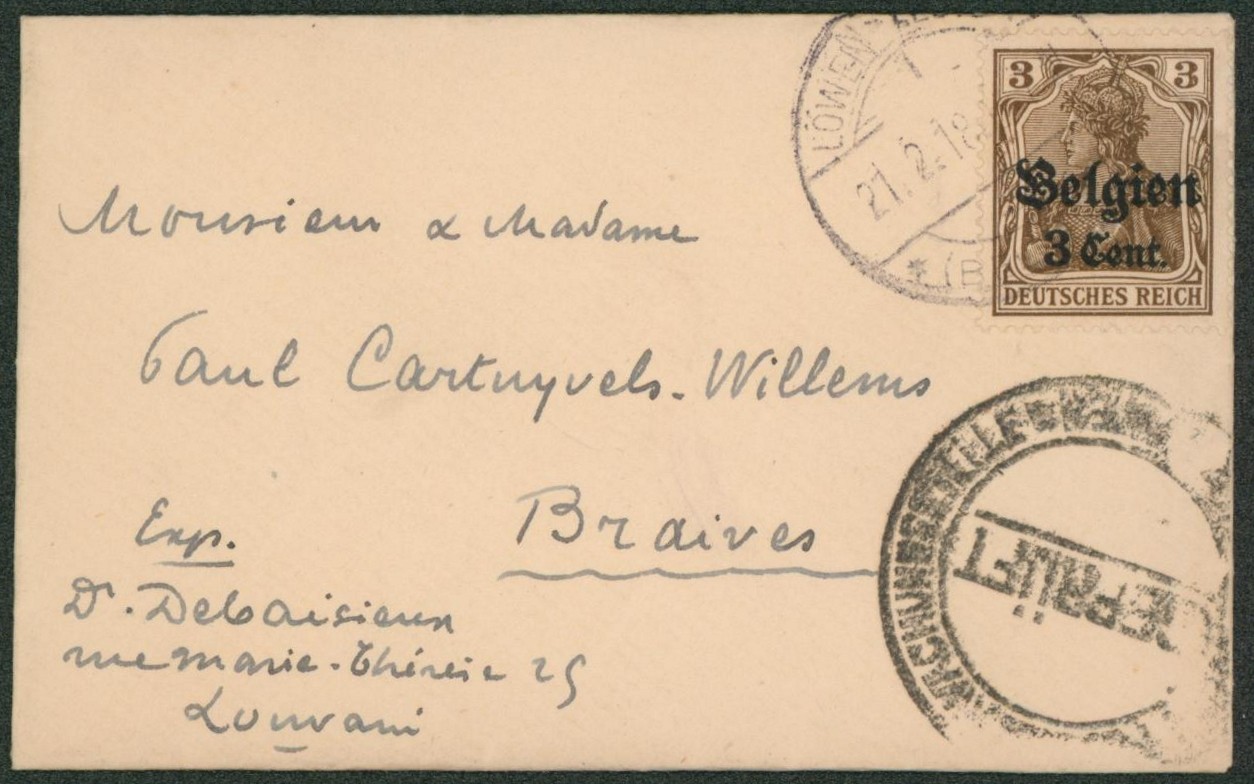 LÖWEN
21.2.18
* (B
3 3
Belgien
3 Cent.
DEUTSCHES REICH
Monsieur & Madame
Paul Cartuyvels-Willems
Braives
Exp.
Dr. Debaisieux
rue Marie-Thérèse 25
Louvain
GEPRÜFT